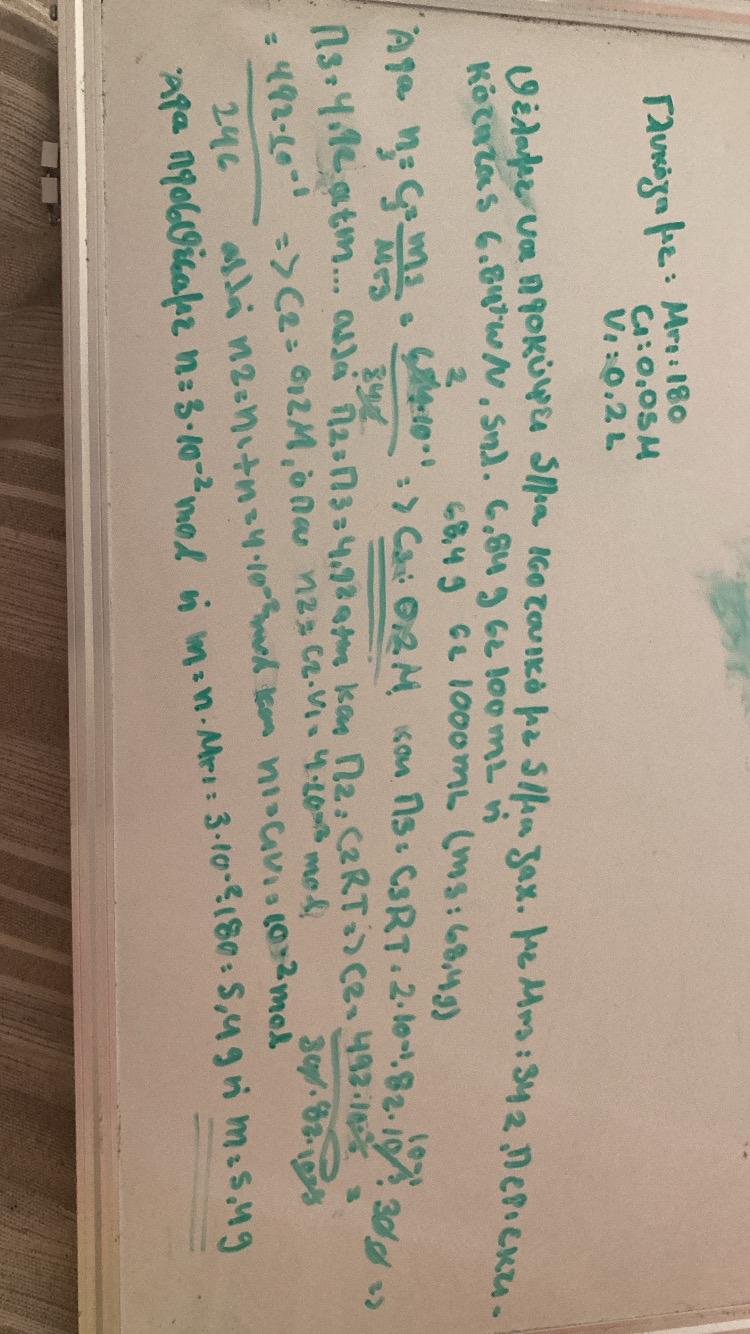 Γλυκόζη με: Mr1=180
C1=0,05M
V1=0,2L
θέλουμε να προκύψει δ/μα ισοτονικό με δ/μα ζαχ. με Mr3=342, περιεκτι-
κότητας 6.84%w/v, δηλ. 6,84g σε 100mL ή
68,4g σε 1000mL (m3=68,4g)
Άρα n3=C3=m3/Mr3 = 684·10⁻¹/342 => C3=0,2M και Π3=C3RT=2·10⁻¹·82·10⁻³·300 =>
Π3=4.92atm... αλλά Π2=Π3=4,92atm και Π2=C2RT=>C2=492·10⁻²/300·82·10⁻³ =
= 492·10⁻¹/246 => C2=0,2M, όπου n2=C2·V1=4·10⁻² mol
αλλά n2=n1+n=4·10⁻²mol και n1=C1V1=10⁻²mol
Άρα προσθέσαμε n=3·10⁻²mol ή m=n·Mr1=3·10⁻²·180=5,4g ή m=5,4g